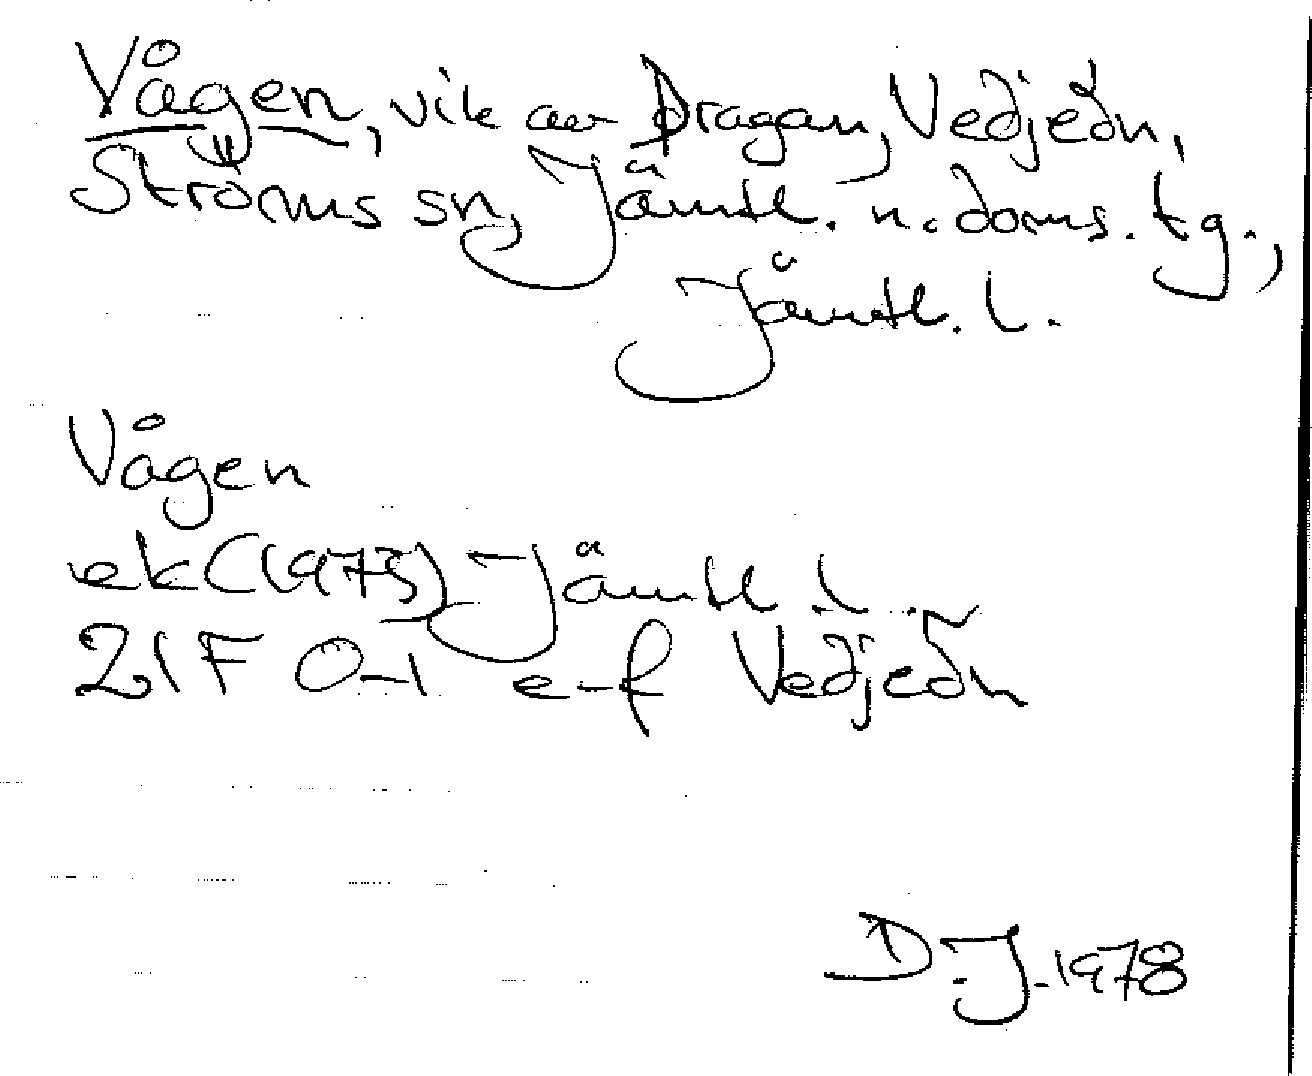 Vågen, vik av Dragan, Vedjeön,
Ströms sn, Jämtl. n. doms. tg.,
Jämtl. l.
Vågen
ek (1975) Jämtl. l.
21F 0-1 e-f Vedjeön
D.J. 1978